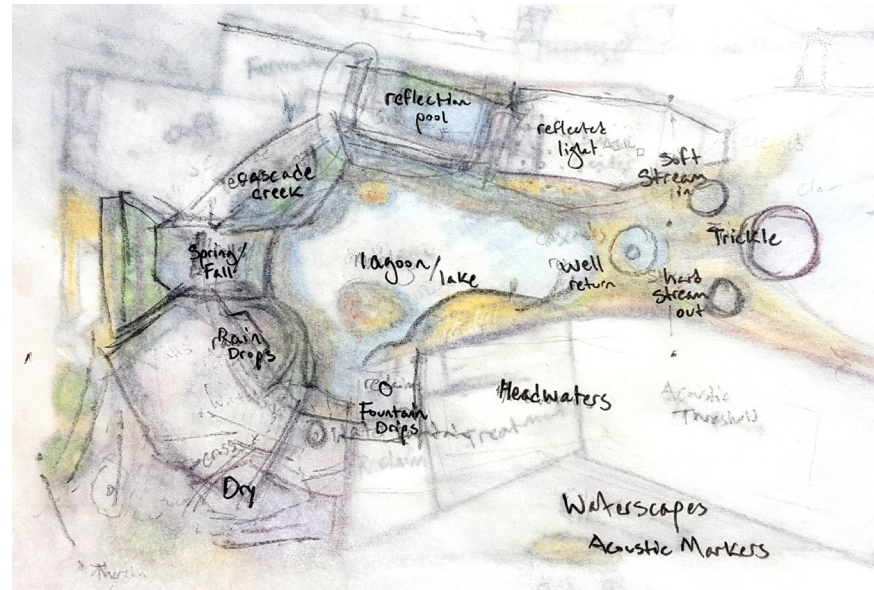 reflection
pool
reflected
light
Soft
Stream
in
Cascade
creek
Trickle
Spring/
Fall
Lagoon/
lake
well
return
hard
stream
out
Rain
Drops
Fountain
Drips
Headwaters
Acoustic
Threshold
Treatment
reclaim
Dry
Waterscapes
Acoustic Markers